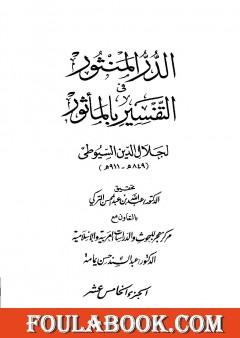 الدر المنثور
في
التفسير بالمأثور
لجلال الدين السيوطي
(٨٤٩هـ - ٩١١هـ)
تحقيق
الدكتور عبد الله بن عبد المحسن التركي
بالتعاون مع
مركز هجر للبحوث والدراسات العربية والإسلامية
الدكتور عبد السند حسن يمامة
الجزء الخامس عشر
FOULABOOK.COM